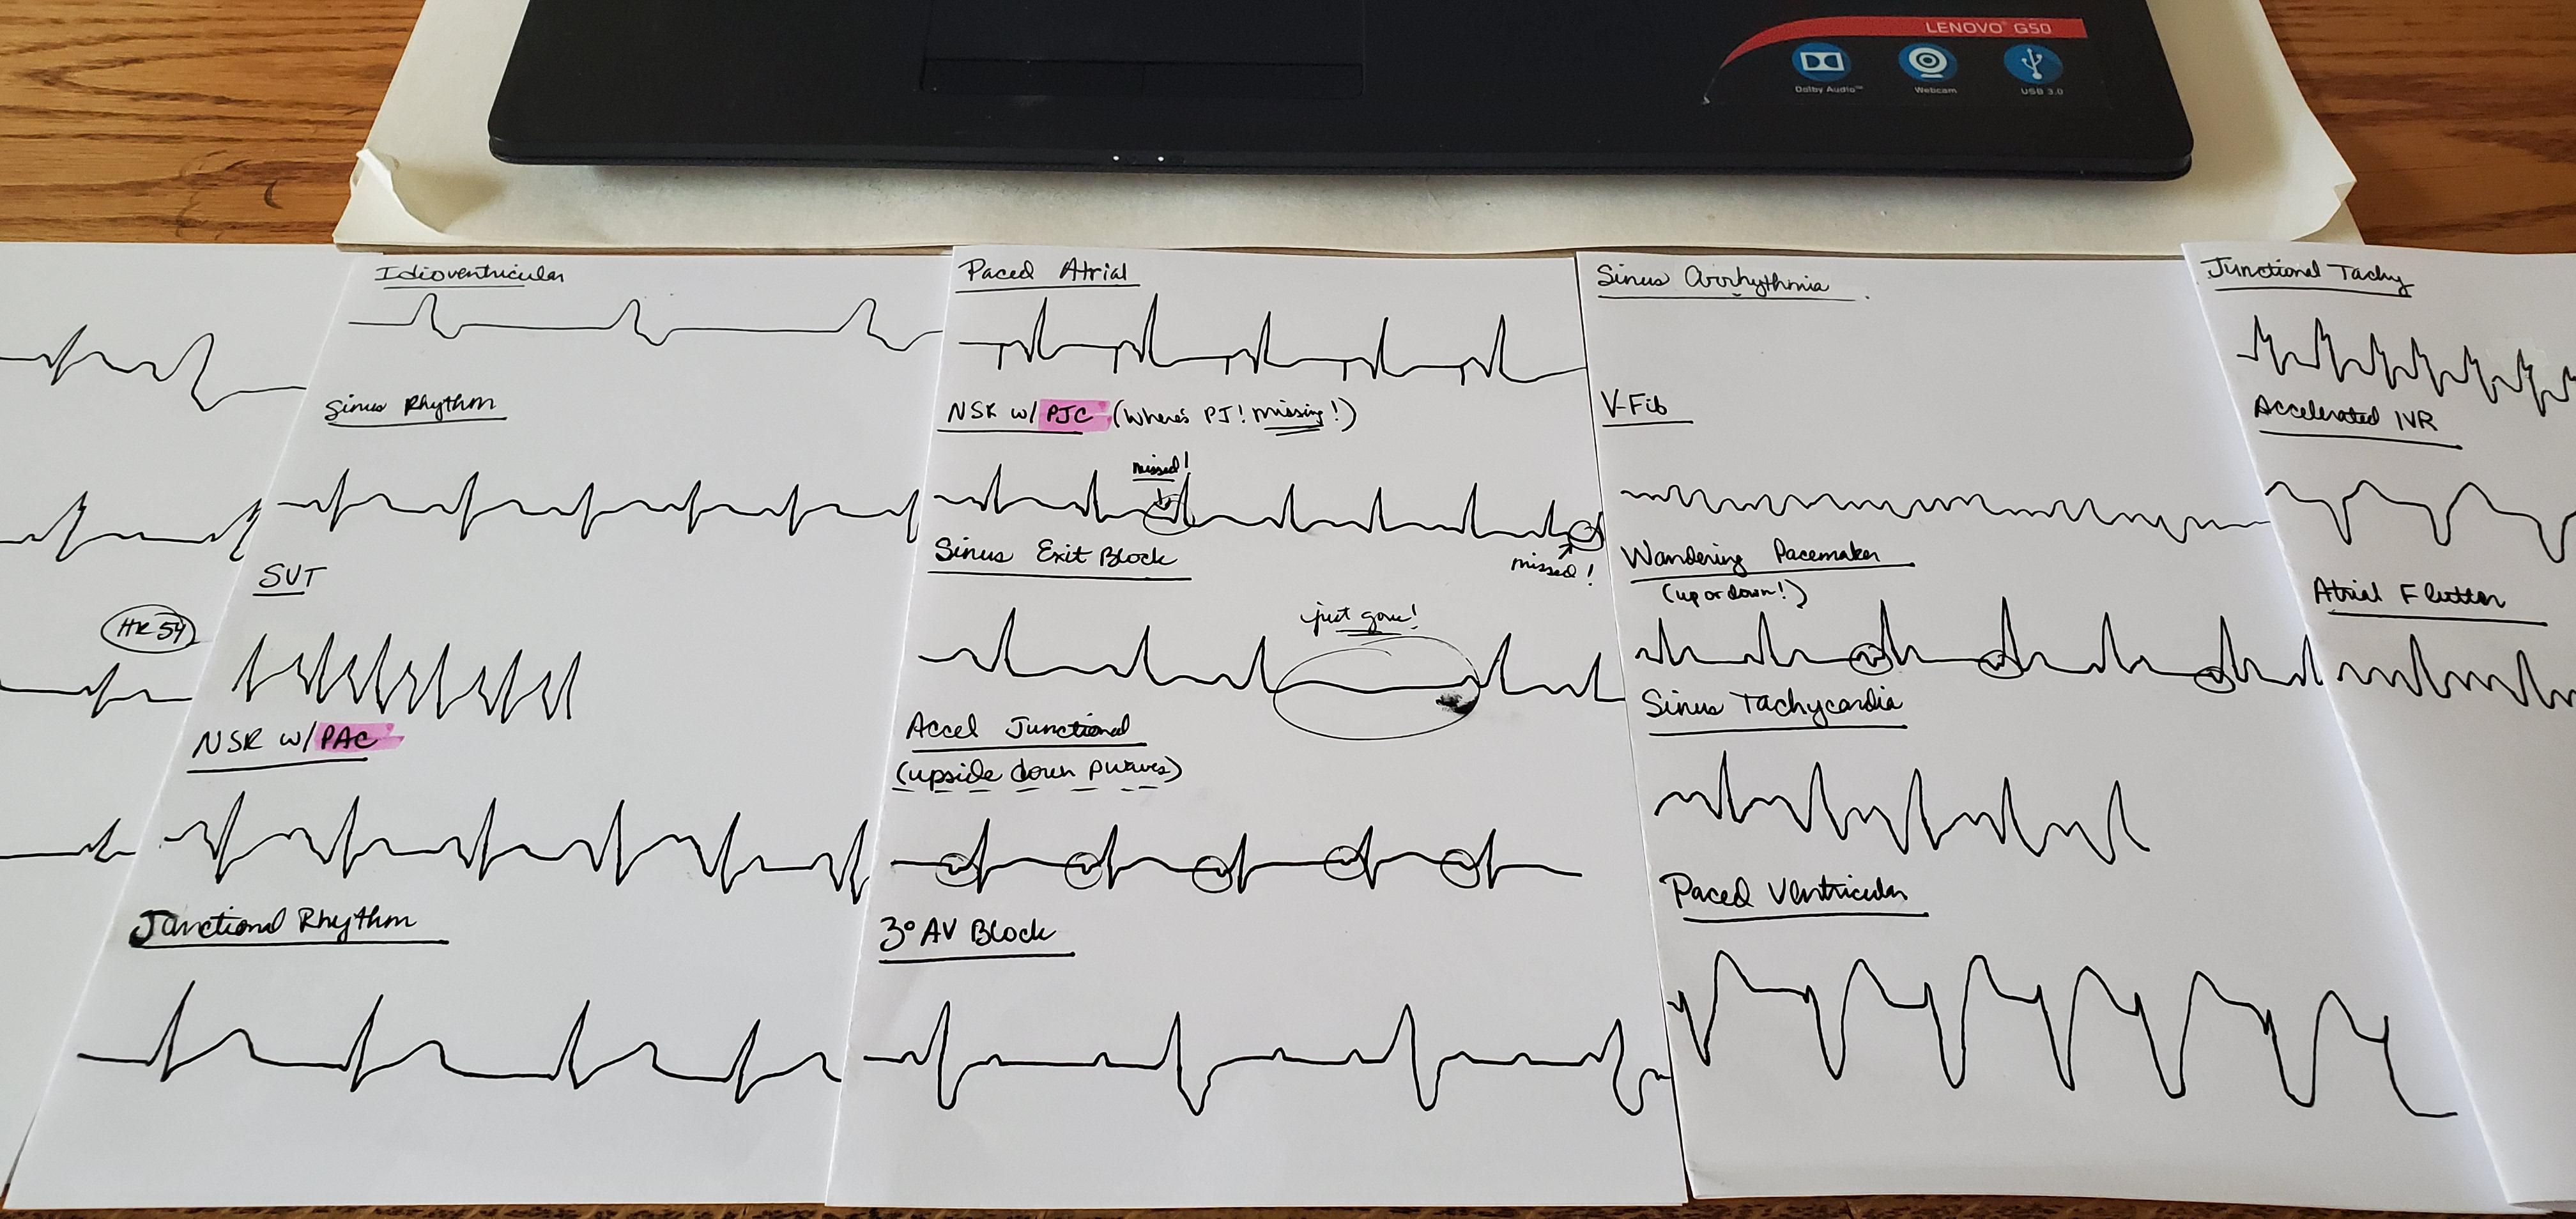 LENOVO G50
Dolby Audio™
Webcam
USB 3.0
HR 54
Idioventricular
Sinus Rhythm
SVT
NSR w/ PAC
Junctional Rhythm
Paced Atrial
NSR w/ PJC (Where's PJ! missing!)
missed!
missed!
Sinus Exit Block
just gone!
Accel Junctional
(upside down p waves)
3° AV Block
Sinus Arrhythmia
V-Fib
Wandering Pacemaker
(up or down!)
Sinus Tachycardia
Paced Ventricular
Junctional Tachy
Accelerated IVR
Atrial Flutter